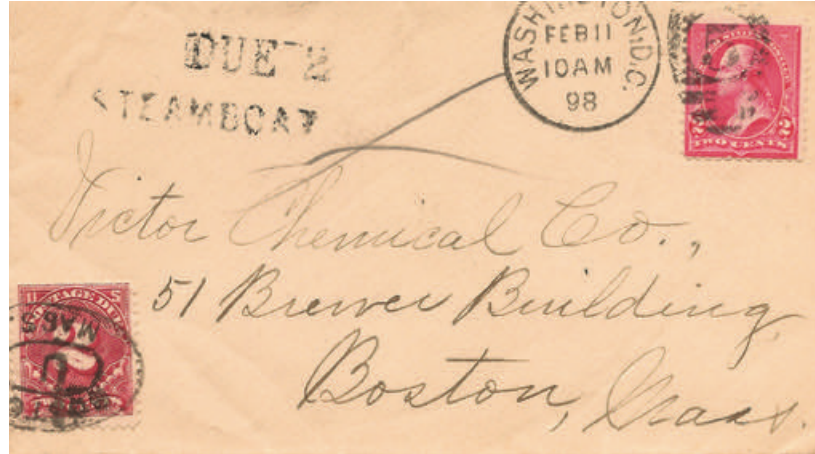 DUE 2
STEAMBOAT
WASHINGTON, D.C.
FEB 11
10 AM
98
TWO CENTS
Victor Chemical Co.,
51 Brewer Building,
Boston, Mass.
POSTAGE DUE
MASS